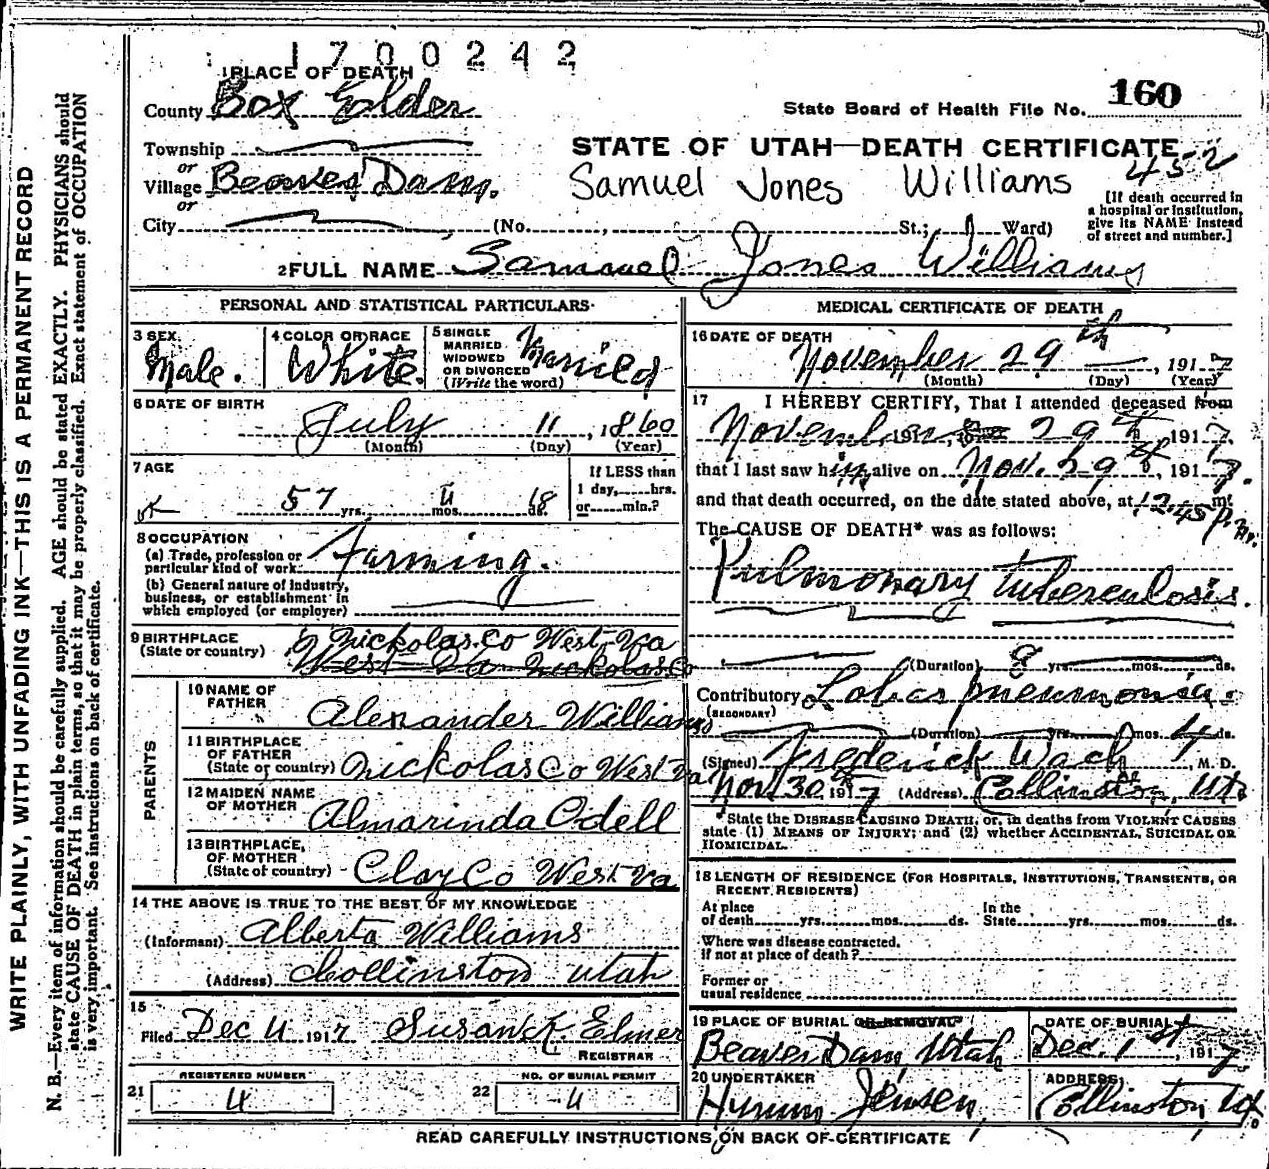 1700242
1 PLACE OF DEATH
County Box Elder
State Board of Health File No. 160
Township
or
Village Beaver Dam.
or
City (No. , St.; Ward)
STATE OF UTAH—DEATH CERTIFICATE
452
Samuel Jones Williams
[If death occurred in
a hospital or institution,
give its NAME instead
of street and number.]
2 FULL NAME Samuel Jones Williams
PERSONAL AND STATISTICAL PARTICULARS
3 SEX
Male.
4 COLOR OR RACE
White.
5 SINGLE
MARRIED
WIDOWED
OR DIVORCED
(Write the word)
Married
6 DATE OF BIRTH
July 11, 1860
(Month) (Day) (Year)
7 AGE
57 yrs. 4 mos. 18 ds.
If LESS than
1 day, hrs.
or min.?
8 OCCUPATION
(a) Trade, profession or
particular kind of work Farming.
(b) General nature of industry,
business, or establishment in
which employed (or employer)
9 BIRTHPLACE
(State or country)
Nickolas Co West Va
West Va Nickolas Co
PARENTS
10 NAME OF
FATHER
Alexander Williams
11 BIRTHPLACE
OF FATHER
(State or country) Nickolas Co West Va
12 MAIDEN NAME
OF MOTHER
Almarinda Odell
13 BIRTHPLACE
OF MOTHER
(State of country) Clay Co West Va
14 THE ABOVE IS TRUE TO THE BEST OF MY KNOWLEDGE
(Informant) Alberta Williams
(Address) Collinston Utah
15
Filed Dec 4 1917 Susan K. Elmer
REGISTRAR
REGISTERED NUMBER
21 4
NO. OF BURIAL PERMIT
22 4
MEDICAL CERTIFICATE OF DEATH
16 DATE OF DEATH
November 29th, 1917
(Month) (Day) (Year)
17 I HEREBY CERTIFY, That I attended deceased from
November 191 29th 1917,
that I last saw him alive on Nov. 29th, 1917.
and that death occurred, on the date stated above, at 12.45 P. m.
The CAUSE OF DEATH* was as follows:
Pulmonary tuberculosis.
(Duration) 8 yrs. mos. ds.
Contributory Lobar pneumonia.
(SECONDARY)
(Duration) yrs. mos. 4 ds.
(Signed) Frederick Wach M. D.
Nov 30th 1917 (Address) Collinston, Ut.
*State the DISEASE CAUSING DEATH, or, in deaths from VIOLENT CAUSES
state (1) MEANS OF INJURY; and (2) whether ACCIDENTAL, SUICIDAL OR
HOMICIDAL.
18 LENGTH OF RESIDENCE (FOR HOSPITALS, INSTITUTIONS, TRANSIENTS, OR
RECENT RESIDENTS)
At place
of death yrs. mos. ds.
In the
State yrs. mos. ds.
Where was disease contracted,
if not at place of death?
Former or
usual residence
19 PLACE OF BURIAL OR REMOVAL
Beaver Dam, Utah
DATE OF BURIAL
Dec. 1st, 1917
20 UNDERTAKER
Hyrum Jensen,
ADDRESS
Collinston Ut.
READ CAREFULLY INSTRUCTIONS ON BACK OF CERTIFICATE
WRITE PLAINLY, WITH UNFADING INK—THIS IS A PERMANENT RECORD
N. B.—Every item of information should be carefully supplied. AGE should be stated EXACTLY. PHYSICIANS should
state CAUSE OF DEATH in plain terms, so that it may be properly classified. Exact statement of OCCUPATION
is very important. See instructions on back of certificate.